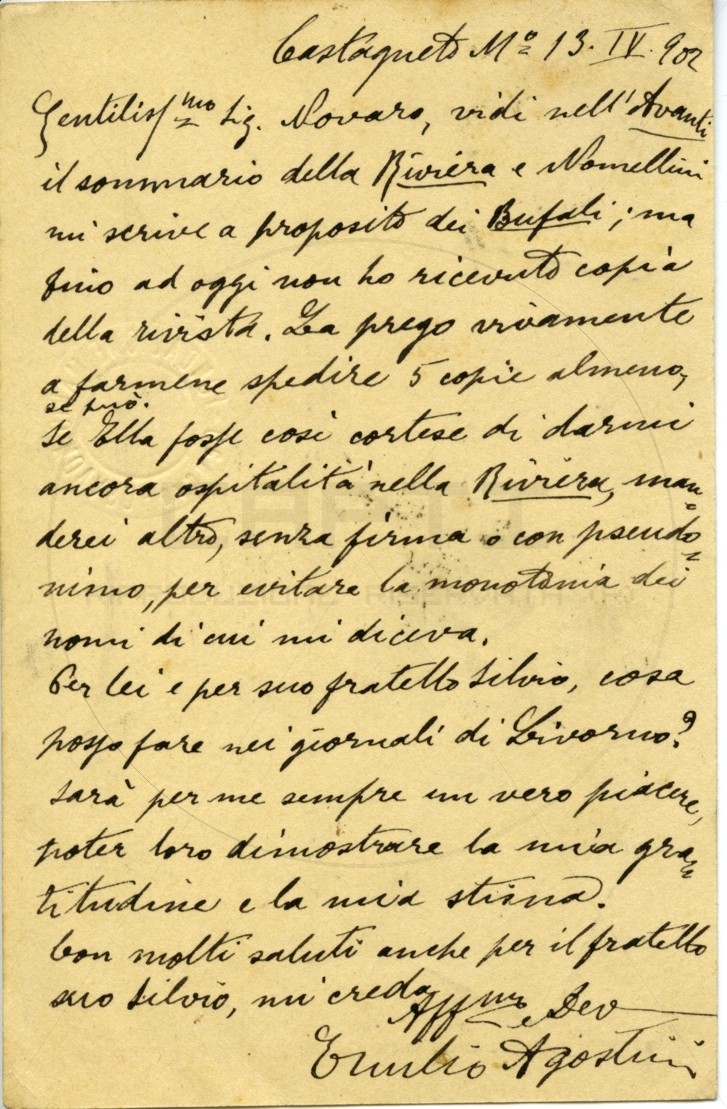 Castagneto Mº 13. IV. 902
Gentiliss.mo Sig. Novaro, vidi nell'Avanti
il sommario della Riviera e Nomellini
mi scrive a proposito dei Bufali; ma
fino ad oggi non ho ricevuto copia
della rivista. La prego vivamente
a farmene spedire 5 copie almeno,
se può.
Se Ella fosse così cortese di darmi
ancora ospitalità nella Riviera, man=
derei altro, senza firma o con pseudo=
nimo, per evitare la monotonia dei
nomi di cui mi diceva.
Per lei e per suo fratello Silvio, cosa
posso fare nei giornali di Livorno?
Sarà per me sempre un vero piacere,
poter loro dimostrare la mia gra=
titudine e la mia stima.
Con molti saluti anche per il fratello
suo Silvio, mi creda
Aff.mo e Dev
Emilio Agostini